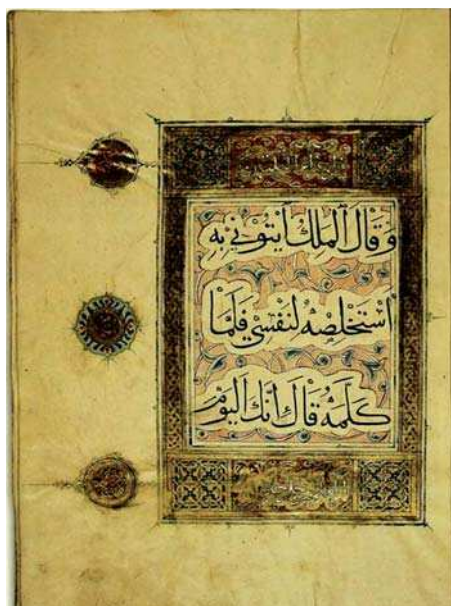 وَقَالَ ٱلْمَلِكُ ٱيتُونِي بِهِ
أَسْتَخْلِصْهُ لِنَفْسِي فَلَمَّا
كَلَّمَهُ قَالَ إِنَّكَ ٱلْيَوْمَ